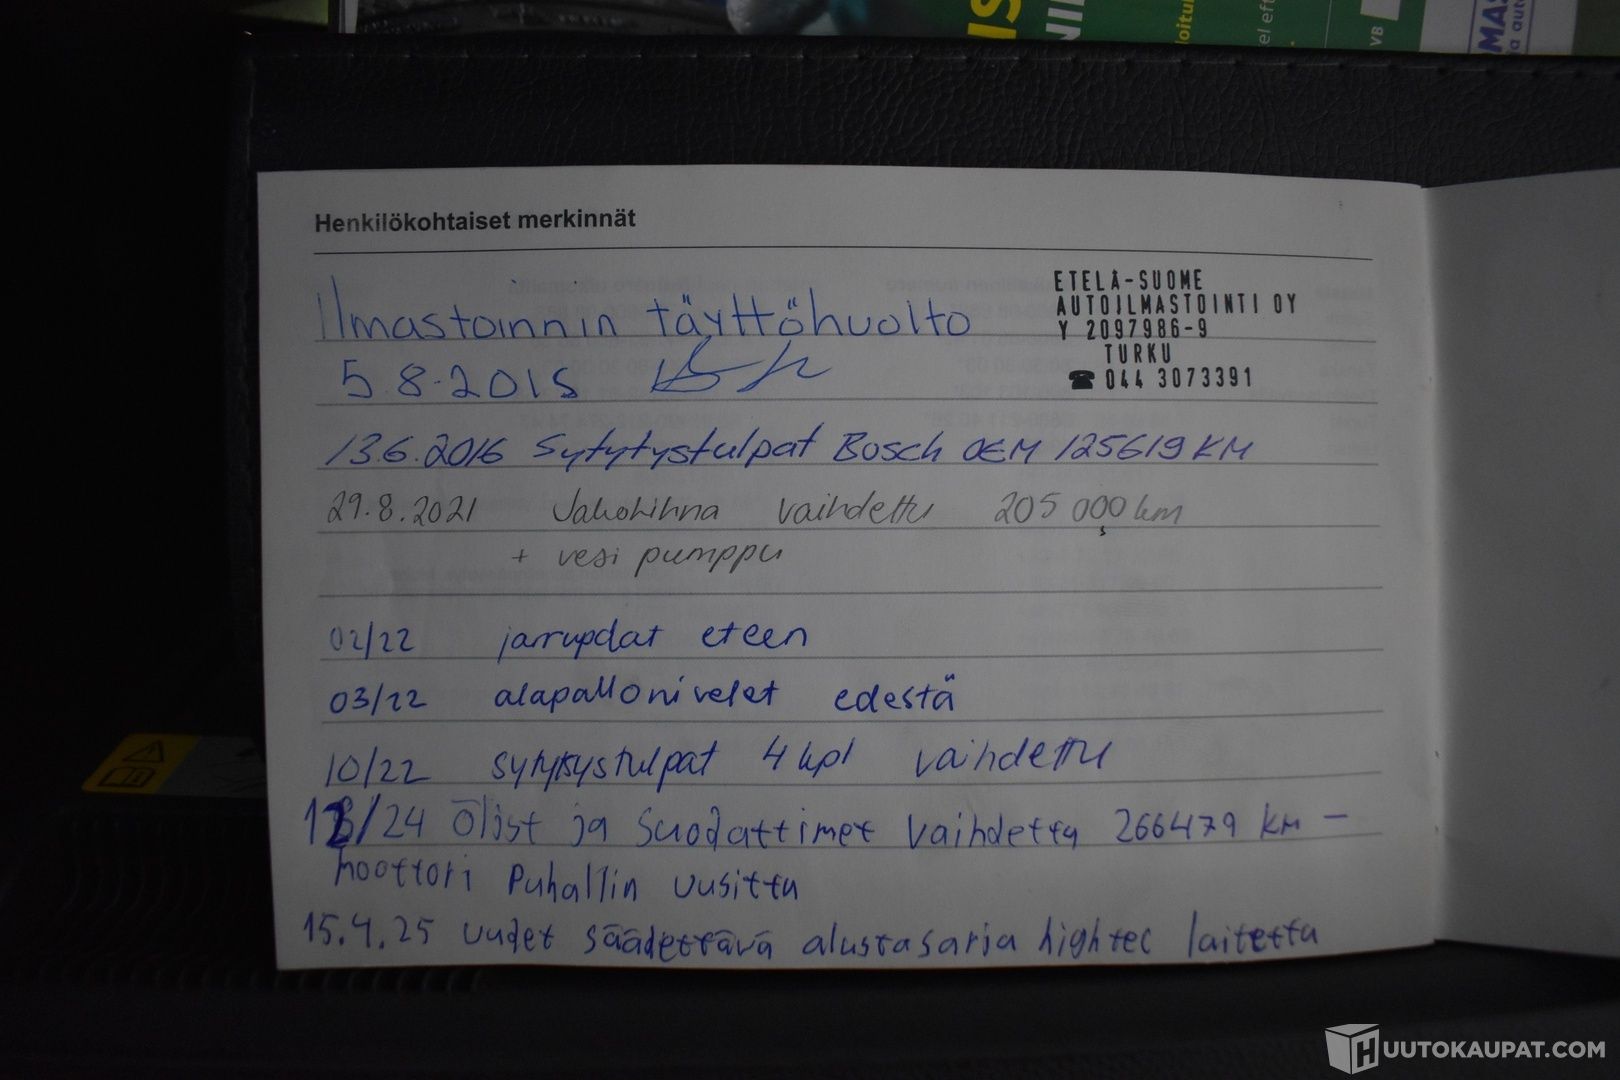 Henkilökohtaiset merkinnät
Ilmastoinnin täyttöhuolto
5.8.2015
ETELÄ-SUOME
AUTOILMASTOINTI OY
Y 2097986-9
TURKU
☎ 044 3073391
13.6.2016 Sytytystulpat Bosch OEM 125619 KM
29.8.2021 Jakohihna vaihdettu 205 000 km
+ vesi pumppu
02/22 jarrupalat eteen
03/22 alapallonivelet edestä
10/22 sytytystulpat 4 kpl vaihdettu
12/24 Öljst ja Suodattimet Vaihdettu 266479 KM –
moottori Puhallin uusittu
15.4.25 uudet säädettävä alustasarja hightec laitettu
HUUTOKAUPAT.COM